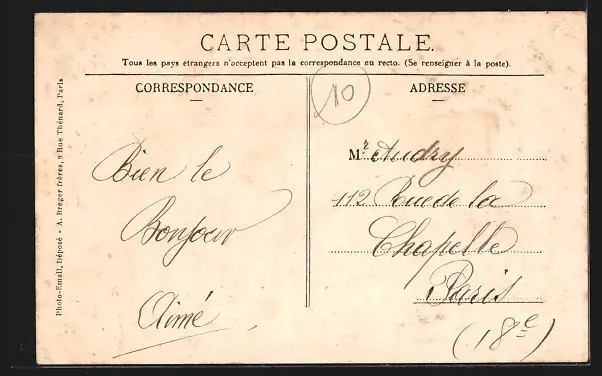 CARTE POSTALE.
Tous les pays étrangers n'acceptent pas la correspondance au recto. (Se renseigner à la poste).
CORRESPONDANCE
ADRESSE
10
Bien le
Bonjour
Aimé
Mr Audry
112 Rue de la
Chapelle
Paris
(18e)
Photo-Email, Déposé - A. Breger frères, 9 Rue Thénard, Paris